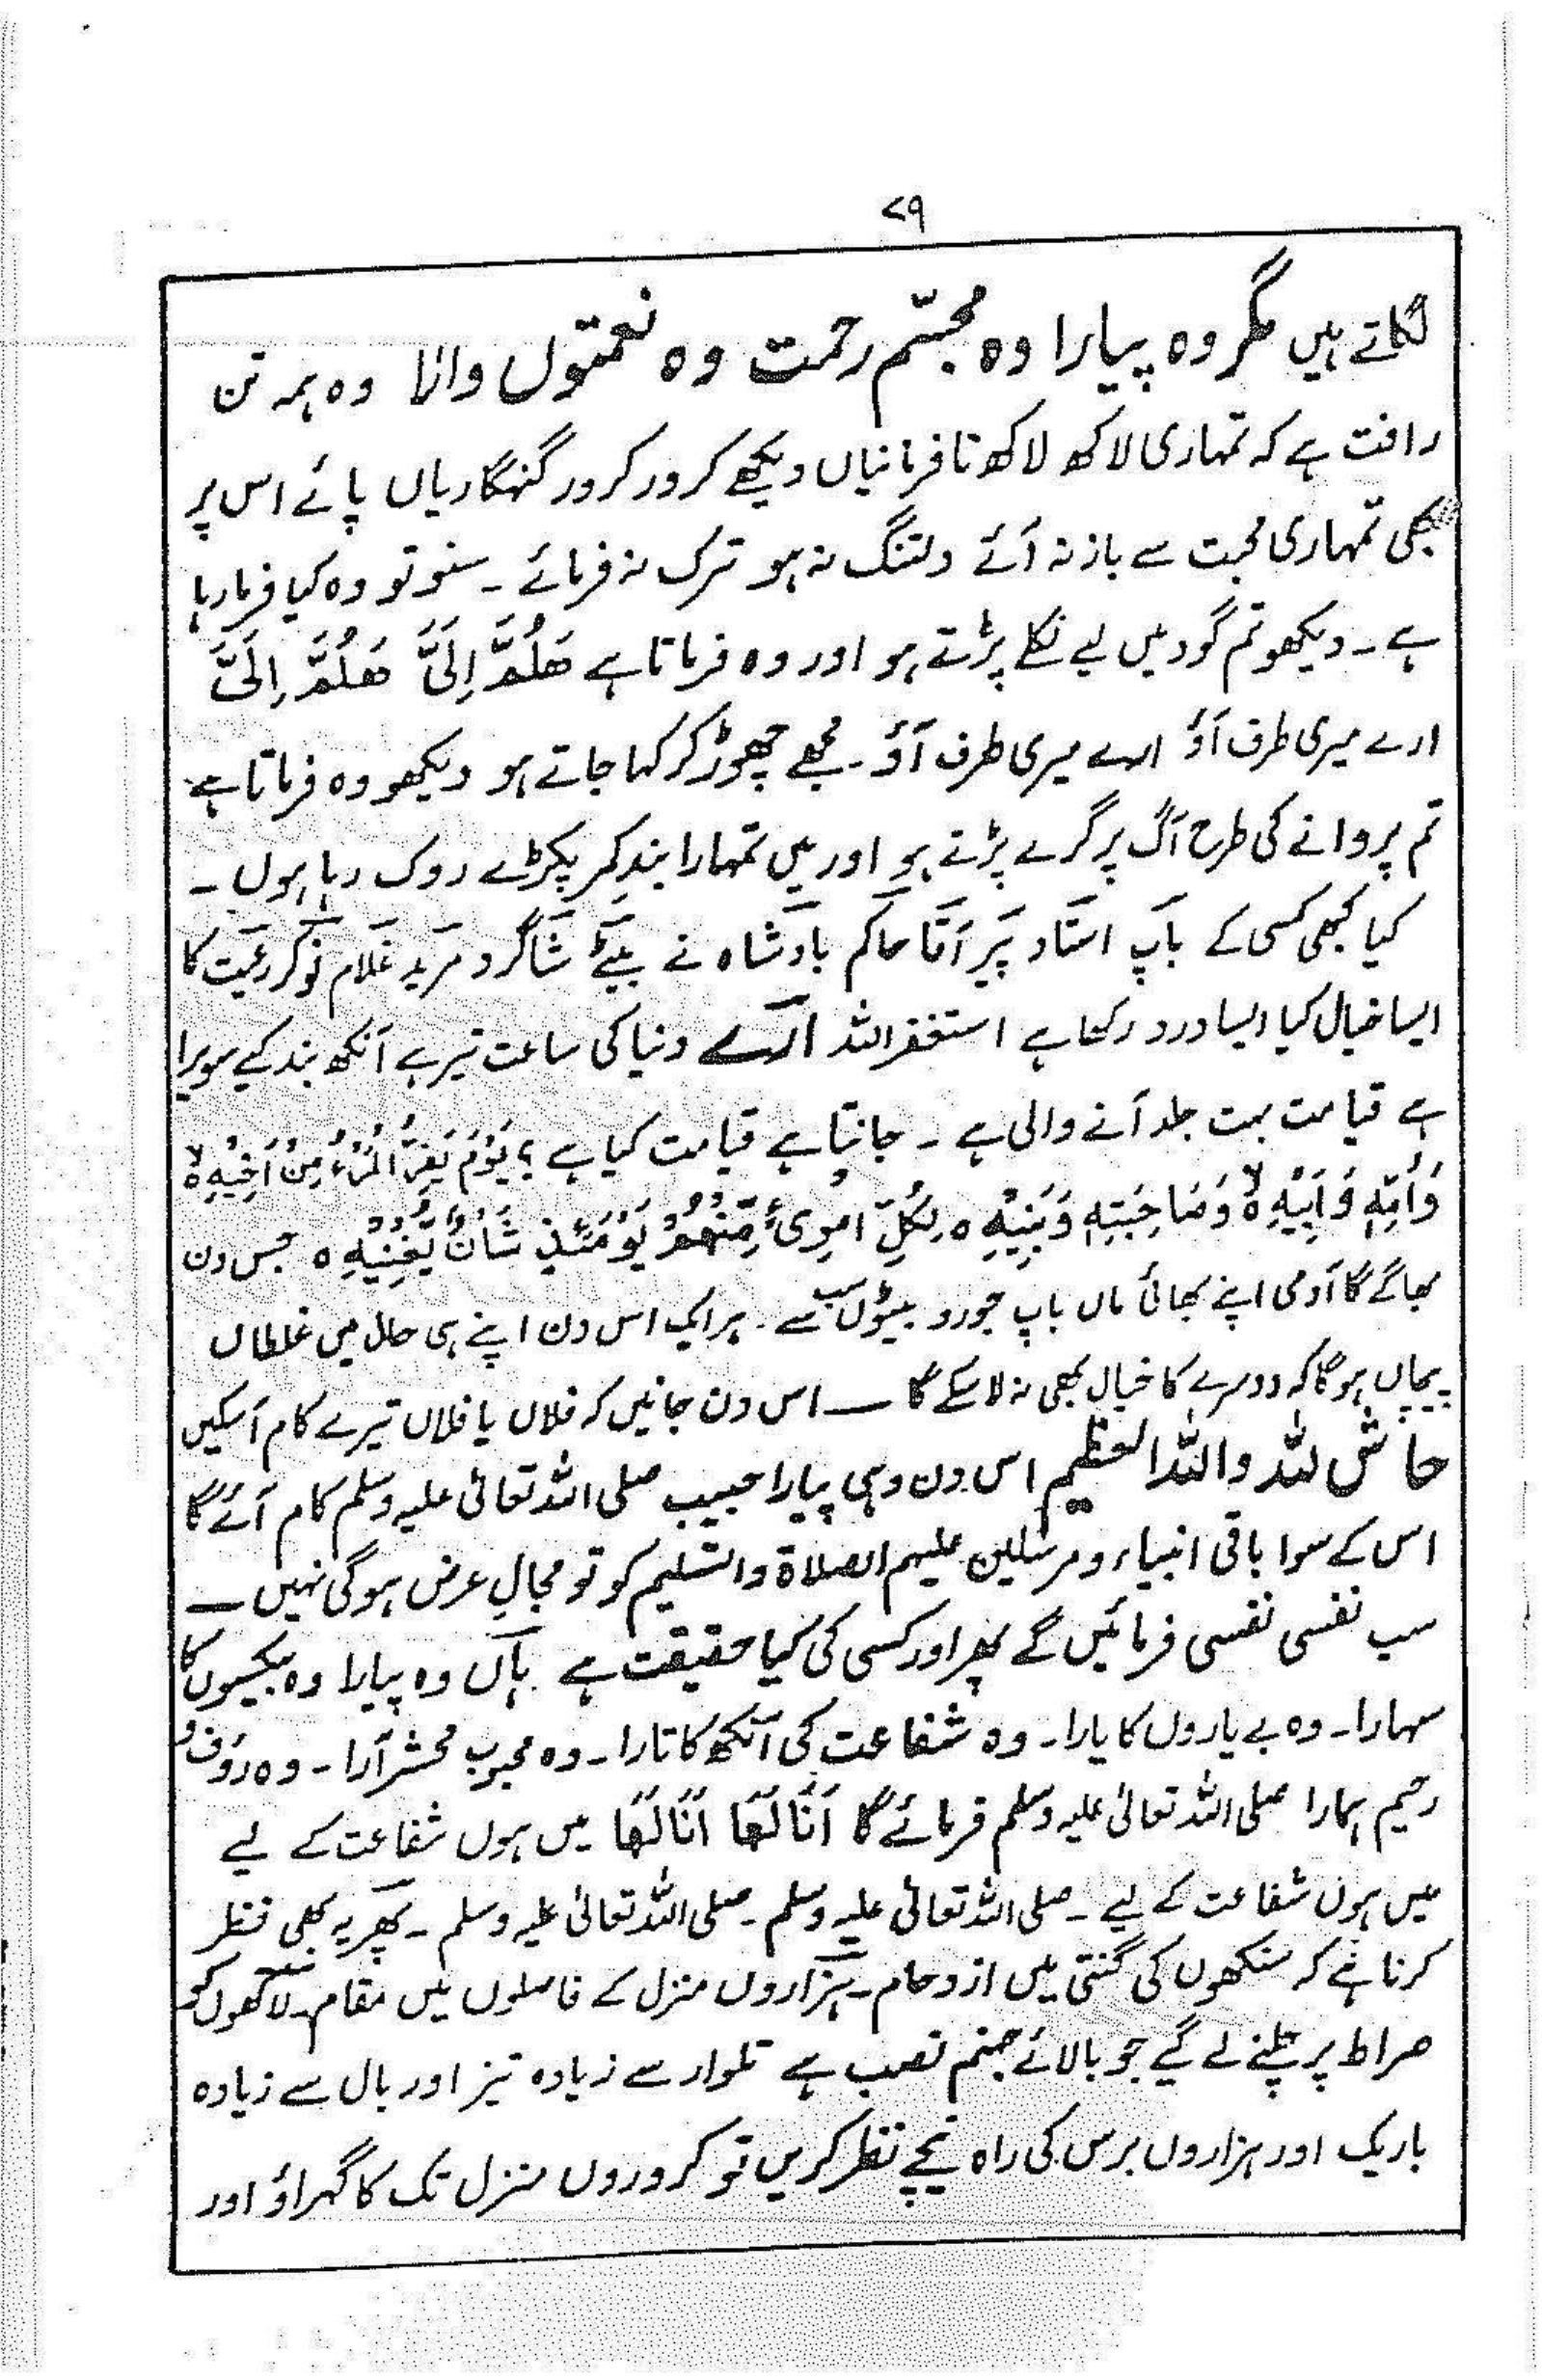 ۷۹
لگاتے ہیں مگر وہ پیارا وہ مجسّم رحمت وہ نعمتوں والا وہ ہمہ تن
رافت ہے کہ تمہاری لاکھ لاکھ نافرمانیاں دیکھے کرور کرور گنہگاریاں پائے اس پر
بھی تمہاری محبت سے باز نہ آئے دلتنگ نہ ہو ترک نہ فرمائے ۔ سنو تو وہ کیا فرما رہا
ہے ۔ دیکھو تم گود میں لیے نکلے پڑتے ہو اور وہ فرماتا ہے ھَلُمَّ اِلَیَّ ھَلُمَّ اِلَیَّ
ارے میری طرف آؤ ارے میری طرف آؤ ۔ مجھے چھوڑ کر کہا جاتے ہو دیکھو وہ فرماتا ہے
تم پروانے کی طرح آگ پر گرے پڑتے ہو اور میں تمہارا بندِ کمر پکڑے روک رہا ہوں ۔
کیا کبھی کسی کے باپ استاد پیر آقا حاکم بادشاہ نے بیٹے شاگرد مرید غلام نوکر رعیت کا
ایسا خیال کیا ایسا درد رکھا ہے استغفر اللہ ارے دنیا کی ساعت تیرہے آنکھ بند کیے سویرا
ہے قیامت بہت جلد آنے والی ہے ۔ جانتا ہے قیامت کیا ہے ؟ یَوْمَ یَفِرُّ الْمَرْءُ مِنْ اَخِیْهِ ۙ
وَاُمِّهٖ وَاَبِیْهِ ۙ وَصَاحِبَتِهٖ وَبَنِیْهِ ہ لِکُلِّ امْرِیءٍ مِّنْهُمْ یَوْمَئِذٍ شَاْنٌ یُّغْنِیْهِ ہ جس دن
بھاگے گا آدمی اپنے بھائی ماں باپ جورو بیٹوں سب سے ۔ ہر ایک اس دن اپنے ہی حال میں غلطاں
پیچاں ہوگا کہ دوسرے کا خیال بھی نہ لا سکے گا ۔ اس دن جانیں کہ فلاں یا فلاں تیرے کام آ سکیں
حاش للہ واللہ العظیم اس دن وہی پیارا حبیب صلی اللہ تعالیٰ علیہ وسلم کام آئے گا
اس کے سوا باقی انبیاء و مرسلین علیہم الصلاۃ والتسلیم کو تو مجالِ عرض ہوگی نہیں ۔
سب نفسی نفسی فرمائیں گے پھر اور کسی کی کیا حقیقت ہے ہاں وہ پیارا وہ بیکسوں کا
سہارا ۔ وہ بے یاروں کا یارا ۔ وہ شفاعت کی آنکھ کا تارا ۔ وہ محبوب محشر آرا ۔ وہ رؤف و
رحیم ہمارا صلی اللہ تعالیٰ علیہ وسلم فرمائے گا اَنَا لَھَا اَنَا لَھَا میں ہوں شفاعت کے لیے
میں ہوں شفاعت کے لیے ۔ صلی اللہ تعالیٰ علیہ وسلم ۔ صلی اللہ تعالیٰ علیہ وسلم ۔ پھر یہ بھی نظر
کرنا ہے کہ سنکھوں کی گنتی میں ازدحام ۔ ہزاروں منزل کے فاصلوں میں مقام لاکھوں کو
صراط پر چلنے لے گیے جو بالائے جہنم نصب ہے تلوار سے زیادہ تیز اور بال سے زیادہ
باریک اور ہزاروں برس کی راہ نیچے نظر کریں تو کروروں منزل تک کا گہراؤ اور